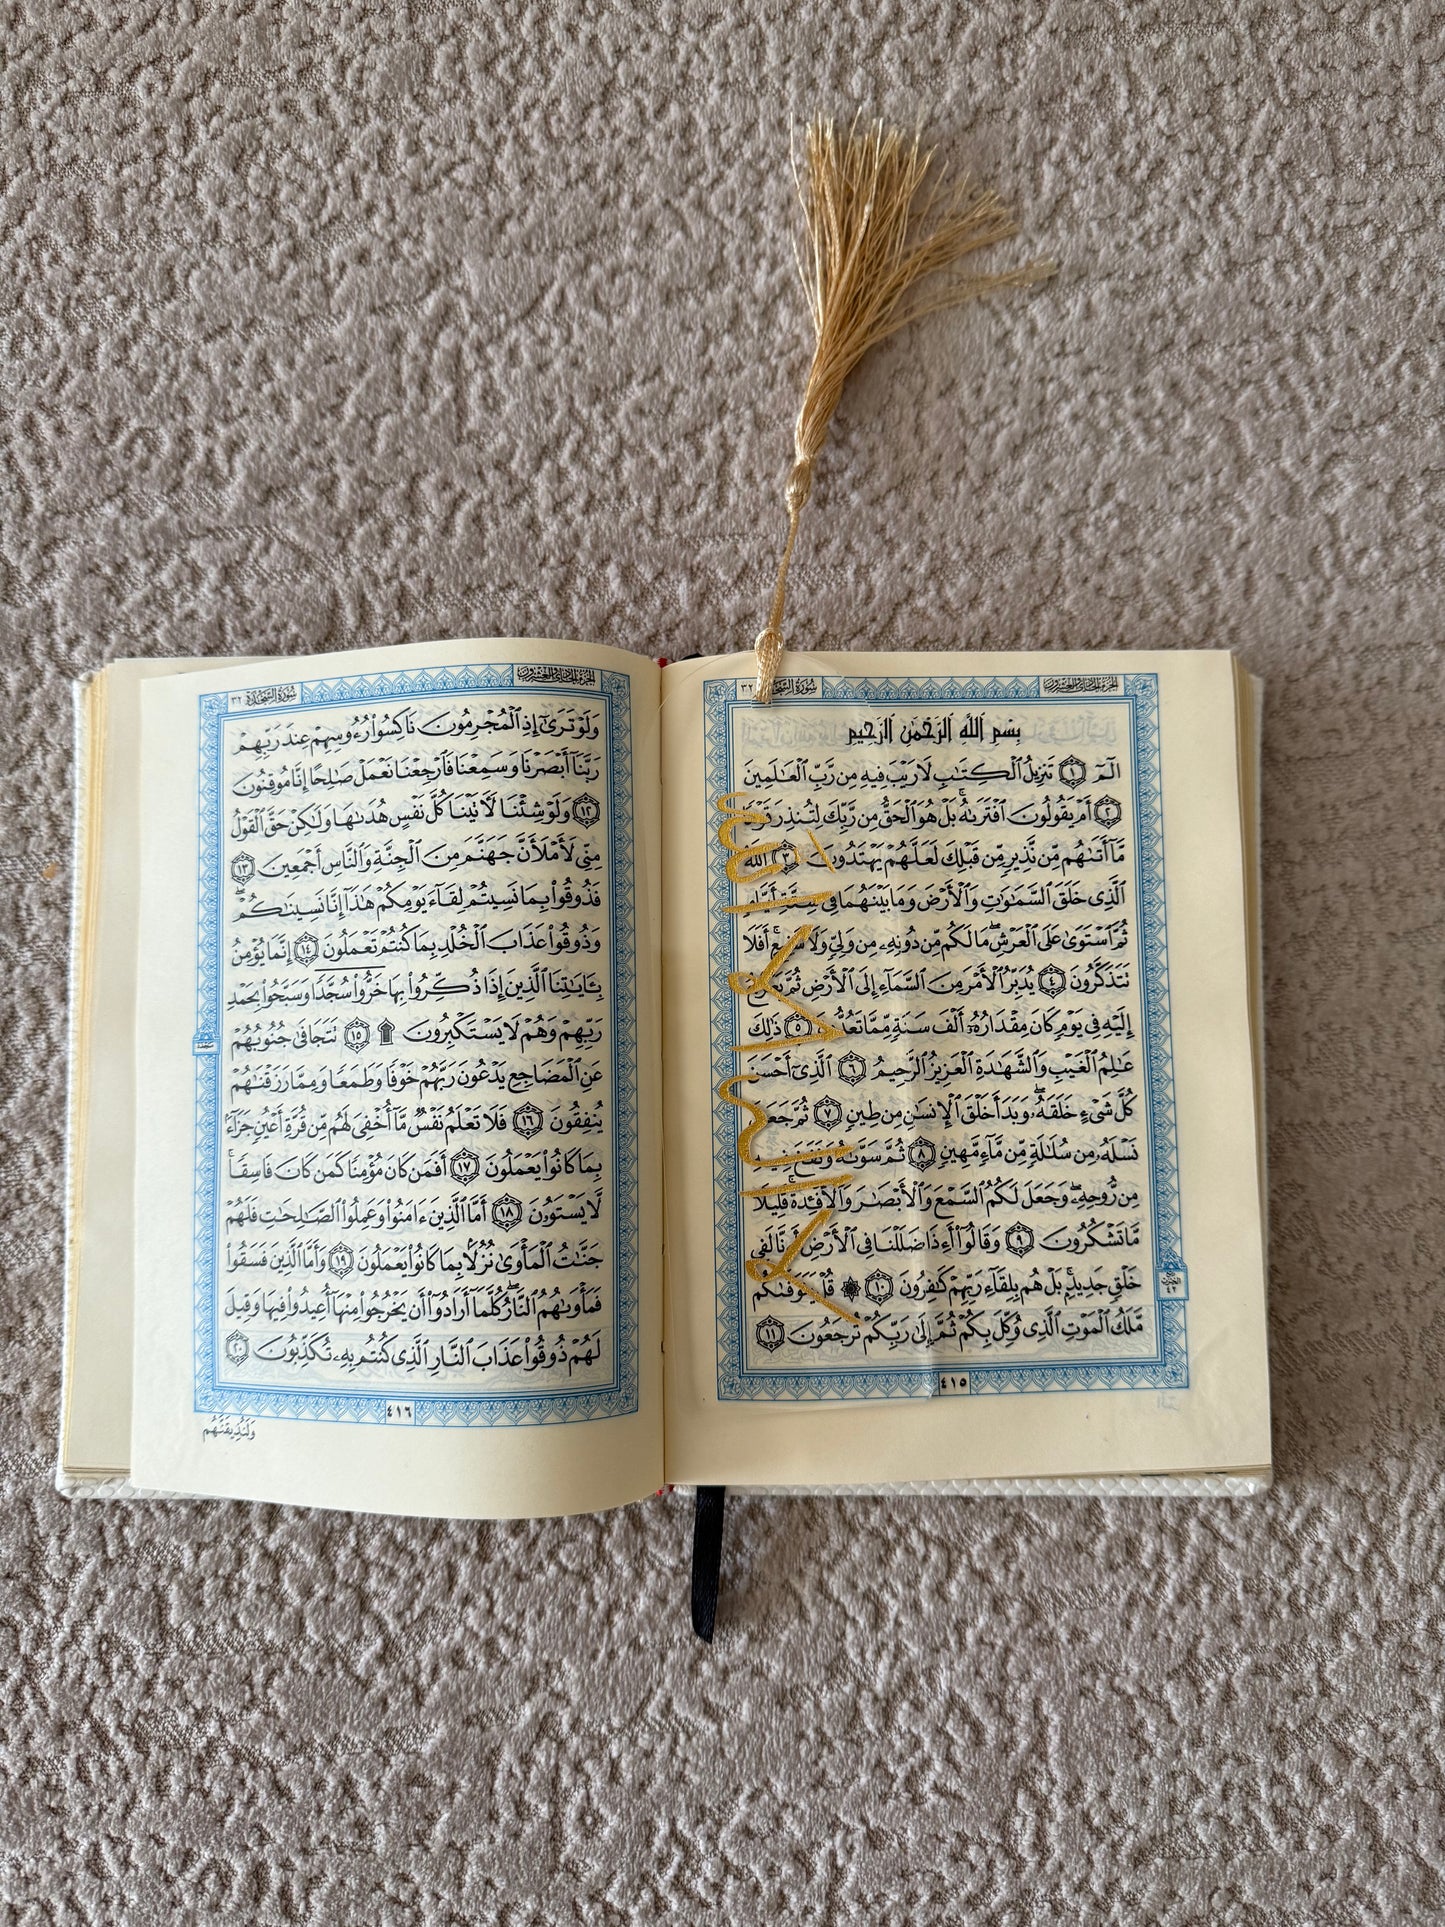 الجزء الحادي والعشرون
سورة السجدة ٣٢
بِسْمِ ٱللَّهِ ٱلرَّحْمَٰنِ ٱلرَّحِيمِ
الٓمٓ ١ تَنزِيلُ ٱلْكِتَٰبِ لَا رَيْبَ فِيهِ مِن رَّبِّ ٱلْعَٰلَمِينَ
٢ أَمْ يَقُولُونَ ٱفْتَرَىٰهُ ۚ بَلْ هُوَ ٱلْحَقُّ مِن رَّبِّكَ لِتُنذِرَ قَوْمًا
مَّآ أَتَىٰهُم مِّن نَّذِيرٍ مِّن قَبْلِكَ لَعَلَّهُمْ يَهْتَدُونَ ٣ ٱللَّهُ
ٱلَّذِى خَلَقَ ٱلسَّمَٰوَٰتِ وَٱلْأَرْضَ وَمَا بَيْنَهُمَا فِى سِتَّةِ أَيَّامٍ
ثُمَّ ٱسْتَوَىٰ عَلَى ٱلْعَرْشِ ۖ مَا لَكُم مِّن دُونِهِۦ مِن وَلِىٍّ وَلَا شَفِيعٍ ۚ أَفَلَا
تَتَذَكَّرُونَ ٤ يُدَبِّرُ ٱلْأَمْرَ مِنَ ٱلسَّمَآءِ إِلَى ٱلْأَرْضِ ثُمَّ يَعْرُجُ
إِلَيْهِ فِى يَوْمٍ كَانَ مِقْدَارُهُۥٓ أَلْفَ سَنَةٍ مِّمَّا تَعُدُّونَ ٥ ذَٰلِكَ
عَٰلِمُ ٱلْغَيْبِ وَٱلشَّهَٰدَةِ ٱلْعَزِيزُ ٱلرَّحِيمُ ٦ ٱلَّذِىٓ أَحْسَنَ
كُلَّ شَىْءٍ خَلَقَهُۥ ۖ وَبَدَأَ خَلْقَ ٱلْإِنسَٰنِ مِن طِينٍ ٧ ثُمَّ جَعَلَ
نَسْلَهُۥ مِن سُلَٰلَةٍ مِّن مَّآءٍ مَّهِينٍ ٨ ثُمَّ سَوَّىٰهُ وَنَفَخَ فِيهِ
مِن رُّوحِهِۦ ۖ وَجَعَلَ لَكُمُ ٱلسَّمْعَ وَٱلْأَبْصَٰرَ وَٱلْأَفْـِٔدَةَ ۚ قَلِيلًا
مَّا تَشْكُرُونَ ٩ وَقَالُوٓا۟ أَءِذَا ضَلَلْنَا فِى ٱلْأَرْضِ أَءِنَّا لَفِى
خَلْقٍ جَدِيدٍۭ ۚ بَلْ هُم بِلِقَآءِ رَبِّهِمْ كَٰفِرُونَ ١٠ ۞ قُلْ يَتَوَفَّىٰكُم
مَّلَكُ ٱلْمَوْتِ ٱلَّذِى وُكِّلَ بِكُمْ ثُمَّ إِلَىٰ رَبِّكُمْ تُرْجَعُونَ ١١
٤١٥
الجزء الحادي والعشرون
سورة السجدة ٣٢
وَلَوْ تَرَىٰٓ إِذِ ٱلْمُجْرِمُونَ نَاكِسُوا۟ رُءُوسِهِمْ عِندَ رَبِّهِمْ
رَبَّنَآ أَبْصَرْنَا وَسَمِعْنَا فَٱرْجِعْنَا نَعْمَلْ صَٰلِحًا إِنَّا مُوقِنُونَ
١٢ وَلَوْ شِئْنَا لَـَٔاتَيْنَا كُلَّ نَفْسٍ هُدَىٰهَا وَلَٰكِنْ حَقَّ ٱلْقَوْلُ
مِنِّى لَأَمْلَأَنَّ جَهَنَّمَ مِنَ ٱلْجِنَّةِ وَٱلنَّاسِ أَجْمَعِينَ ١٣
فَذُوقُوا۟ بِمَا نَسِيتُمْ لِقَآءَ يَوْمِكُمْ هَٰذَآ إِنَّا نَسِينَٰكُمْ ۖ
وَذُوقُوا۟ عَذَابَ ٱلْخُلْدِ بِمَا كُنتُمْ تَعْمَلُونَ ١٤ إِنَّمَا يُؤْمِنُ
بِـَٔايَٰتِنَا ٱلَّذِينَ إِذَا ذُكِّرُوا۟ بِهَا خَرُّوا۟ سُجَّدًا وَسَبَّحُوا۟ بِحَمْدِ
رَبِّهِمْ وَهُمْ لَا يَسْتَكْبِرُونَ ۩ ١٥ تَتَجَافَىٰ جُنُوبُهُمْ
عَنِ ٱلْمَضَاجِعِ يَدْعُونَ رَبَّهُمْ خَوْفًا وَطَمَعًا وَمِمَّا رَزَقْنَٰهُمْ
يُنفِقُونَ ١٦ فَلَا تَعْلَمُ نَفْسٌ مَّآ أُخْفِىَ لَهُم مِّن قُرَّةِ أَعْيُنٍ جَزَآءًۢ
بِمَا كَانُوا۟ يَعْمَلُونَ ١٧ أَفَمَن كَانَ مُؤْمِنًا كَمَن كَانَ فَاسِقًا ۚ
لَّا يَسْتَوُۥنَ ١٨ أَمَّا ٱلَّذِينَ ءَامَنُوا۟ وَعَمِلُوا۟ ٱلصَّٰلِحَٰتِ فَلَهُمْ
جَنَّٰتُ ٱلْمَأْوَىٰ نُزُلًۢا بِمَا كَانُوا۟ يَعْمَلُونَ ١٩ وَأَمَّا ٱلَّذِينَ فَسَقُوا۟
فَمَأْوَىٰهُمُ ٱلنَّارُ ۖ كُلَّمَآ أَرَادُوٓا۟ أَن يَخْرُجُوا۟ مِنْهَآ أُعِيدُوا۟ فِيهَا وَقِيلَ
لَهُمْ ذُوقُوا۟ عَذَابَ ٱلنَّارِ ٱلَّذِى كُنتُم بِهِۦ تُكَذِّبُونَ ٢٠
٤١٦
وَلَنُذِيقَنَّهُم